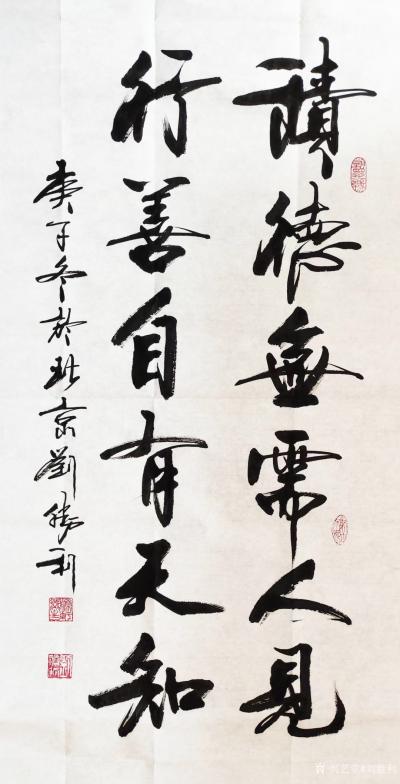 積德無需人見
行善自有天知
庚子冬於北京劉勝利